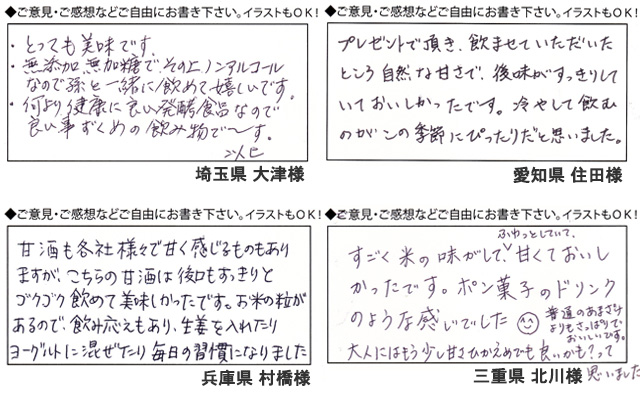 ◆ご意見・ご感想などご自由にお書き下さい。イラストもOK!
・とっても美味です。
・無添加、無加糖で、その上ノンアルコール
なので孫と一緒に飲めて嬉しいです。
・何より健康に良い発酵食品なので
良い事ずくめの飲み物で〜す。
埼玉県 大津様
◆ご意見・ご感想などご自由にお書き下さい。イラストもOK!
プレゼントで頂き、飲ませていただいた
ところ自然な甘さで、後味がすっきりして
いておいしかったです。冷やして飲む
のがこの季節にぴったりだと思いました。
愛知県 住田様
◆ご意見・ご感想などご自由にお書き下さい。イラストもOK!
甘酒も各社様々で甘く感じるものもあり
ますが、こちらの甘酒は後口もすっきりと
ゴクゴク飲めて美味しかったです。お米の粒が
あるので、飲み応えもあり、生姜を入れたり
ヨーグルトに混ぜたり毎日の習慣になりました
兵庫県 村橋様
◆ご意見・ご感想などご自由にお書き下さい。イラストもOK!
ふわっとしていて、
すごく米の味がして、甘くておいし
かったです。ポン菓子のドリンク
のような感じでした
普通のあまざけ
よりもさっぱりで
おいしいです。
大人にはもう少し甘さひかえめでも良いかも?って
思いました
三重県 北川様